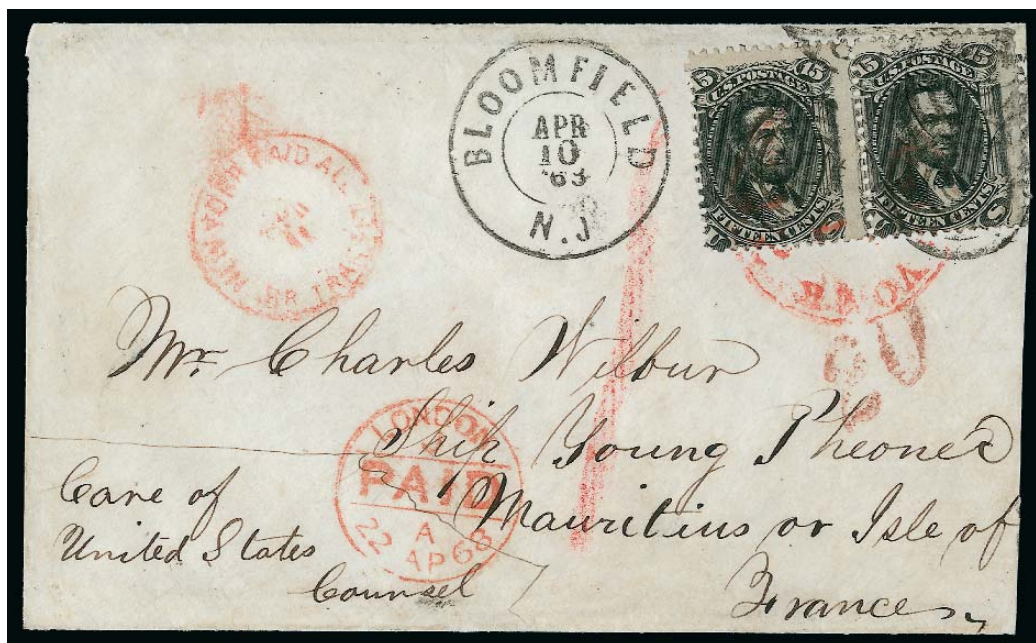 BLOOMFIELD
APR
10
'68
N.J.
15 U.S. POSTAGE 15
FIFTEEN CENTS
15 U.S. POSTAGE 15
FIFTEEN CENTS
NEW YORK PAID ALL
BR. TRANSIT
Mr. Charles Wilbur
Ship Young Pheonex
Mauritius or Isle of
France
LONDON
PAID
A
22 AP 68
Care of
United States
Counsel